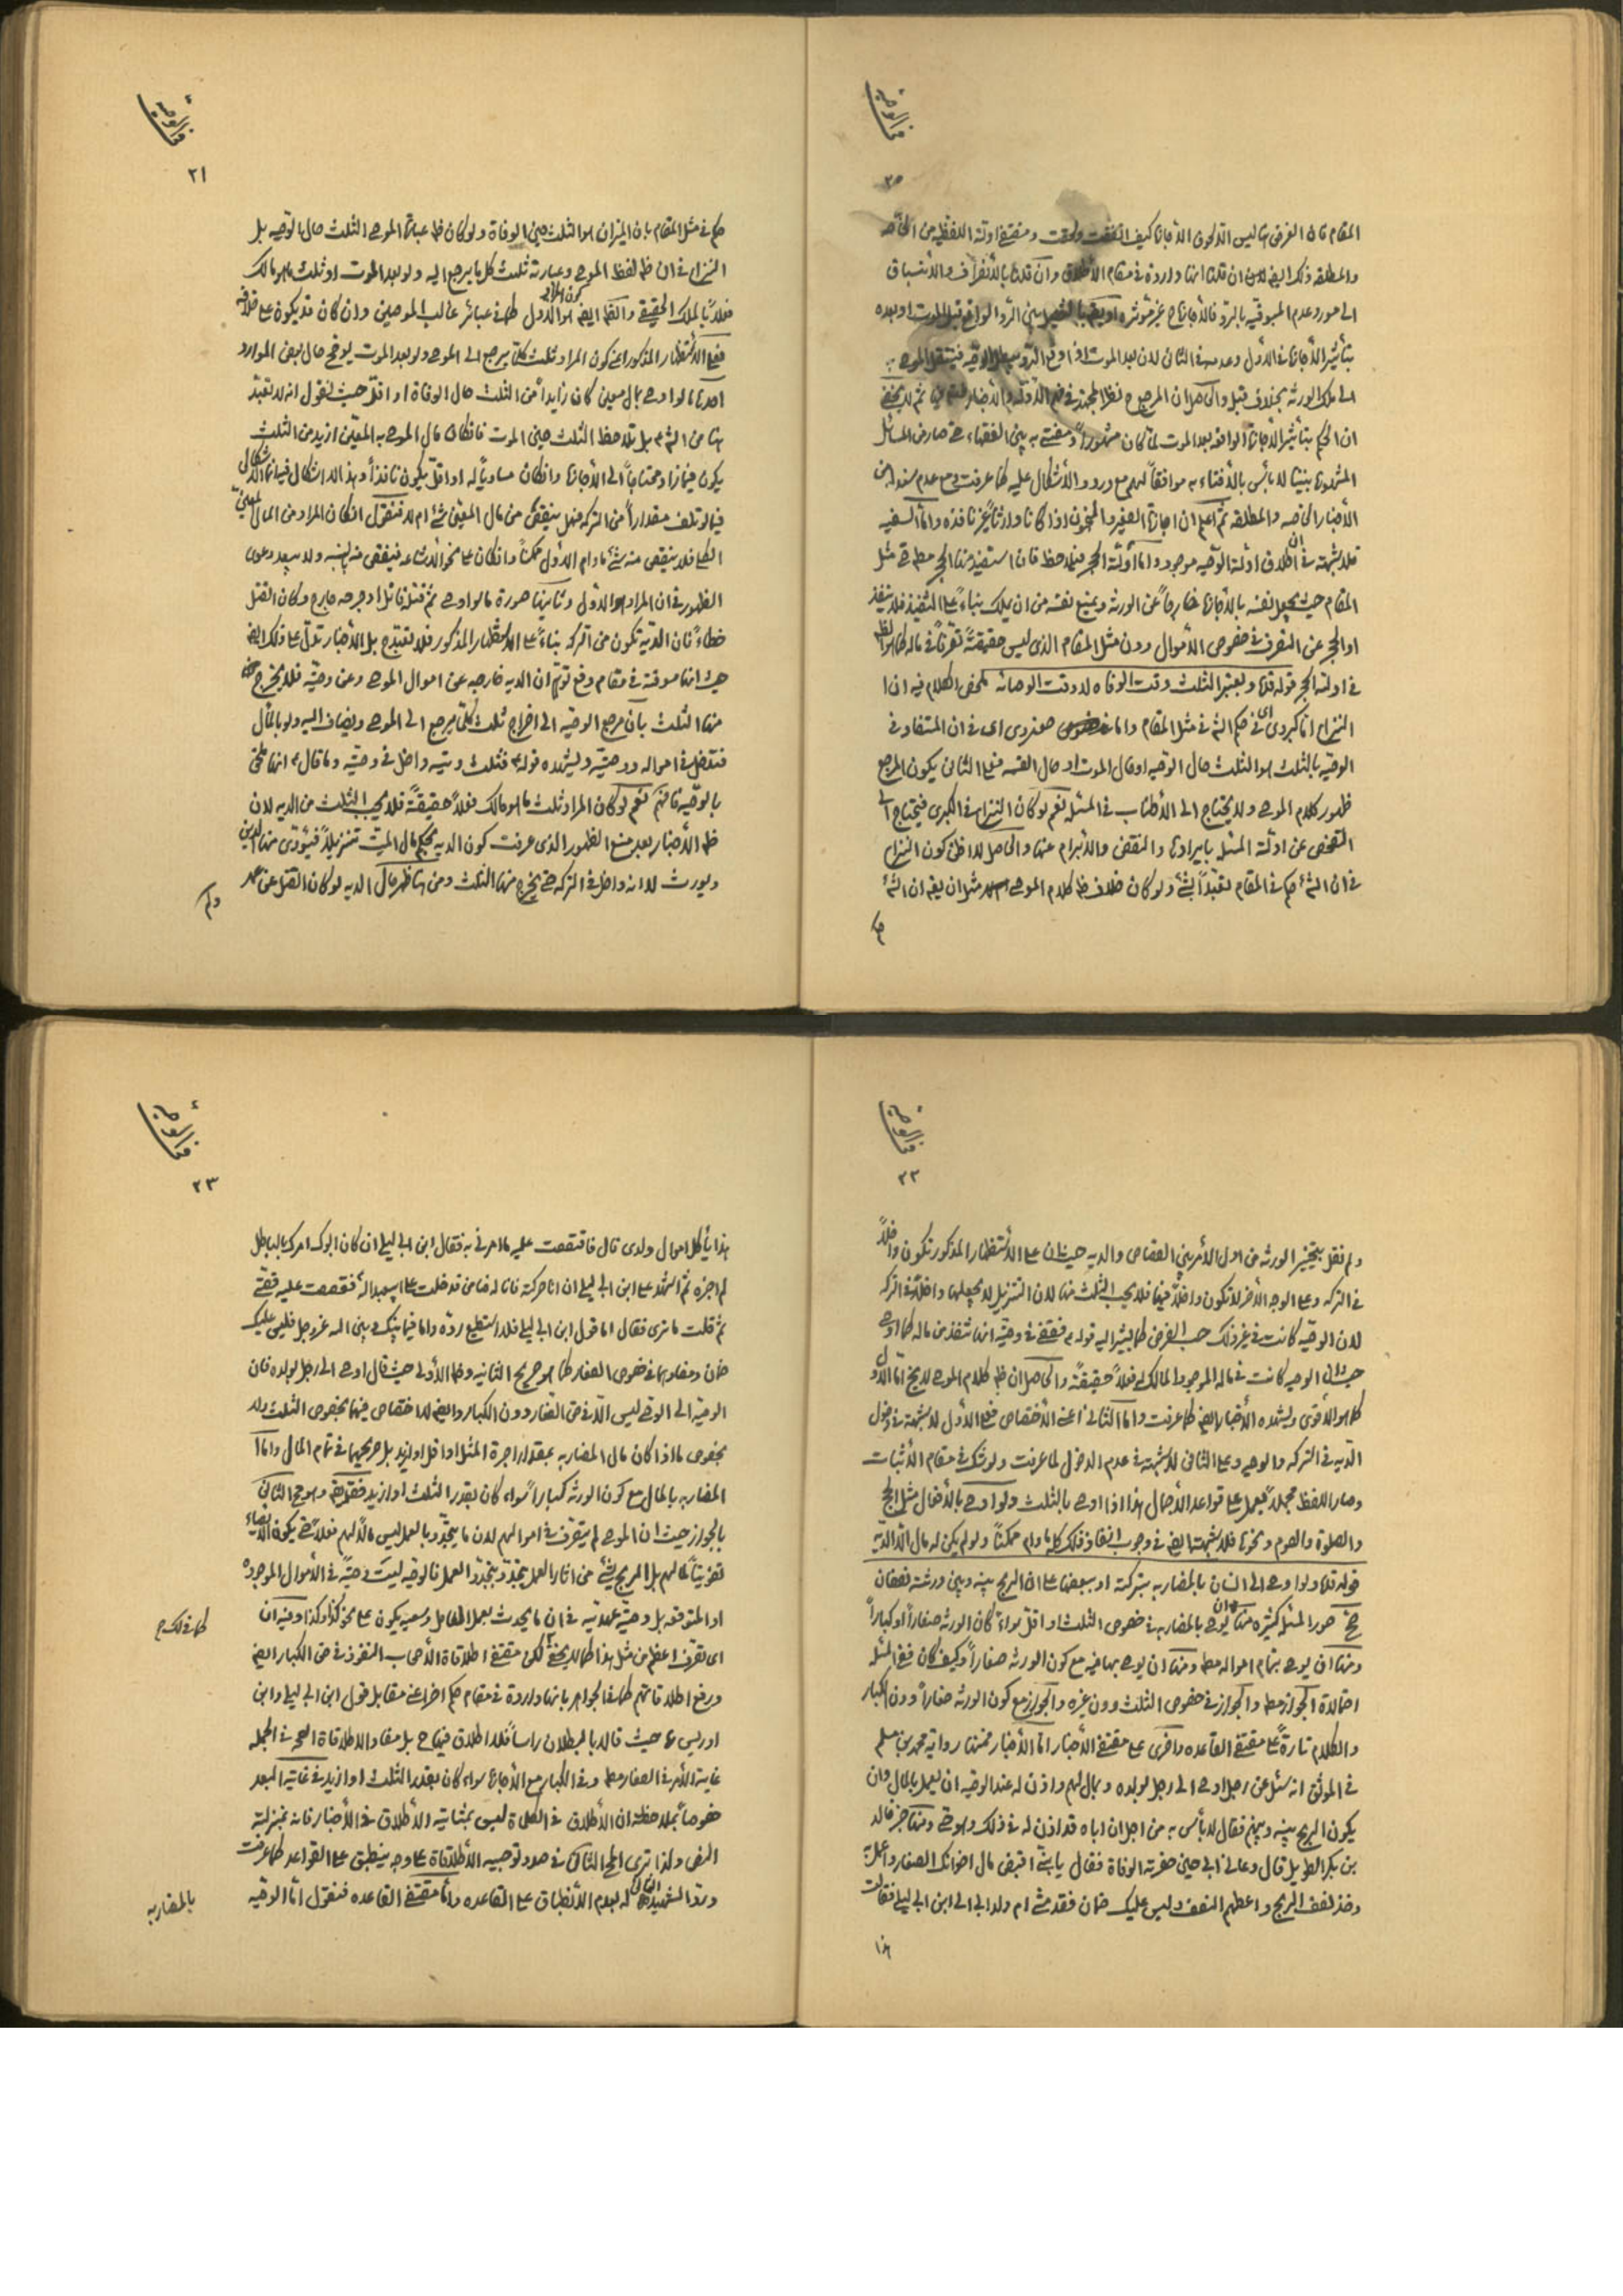 كتاب الوصية
٢٠
المقام فان الغرض انه ليس الا لحوق الاجازة كيف اتفقت ولحقت ومقتضى ادلة اللفظيه من الخاصه
والمطلقه ذلك ايضا ان قلنا انها واردة في مقام الاطلاق وان قلنا بالانصراف والانسباق
الى صورة عدم المسبوقيه بالرد فالاجازة ح غير مؤثره او يفصل بين الرد الواقع قبل الموت او بعده
بتأثير الاجازة في الاول وعدمه في الثاني لان بعد الموت اذا وقع الرد يبطل الوصيه فينتقل الموصى به
الى ملك الورثه بخلاف قبل والحاصل ان المرجع ح نظر المجتهد في فهم الادله والاخبار ثم لا يخفى
ان الحكم بتأثير الاجازة الواقعه بعد الموت لما كان مشهوراً ومفتى به بين الفقهاء حتى صار من المسائل
المشهورة بينها لا بأس بالافتاء به موافقاً لهم مع ورود الاشكال عليه كما عرفت ح مع عدم سند من
الاخبار الخاصه والمطلقه ثم اعلم ان اجازة الصغير والمجنون اذا كانا وارثاً غير نافذه واما السفيه
فلا شبهة في ان اطلاق ادلة الوصيه موجود واما ادلة الحجر فيلاحظ فان استفيد منها الحجر مط حتى مثل
المقام حيث يجعل نفسه بالاجازة خارجاً عن الورثه ويمنع نفسه من ان يملك بناءً على التنفيذ فلا ينفذ
او الحجر عن التصرف في خصوص الاموال دون مثل المقام الذى ليس حقيقةً تصرفاً في ماله كما هو الظ
في ادلة الحجر قوله قده ويعتبر الثلث وقت الوفاه لا وقت الوصاية ملخص الكلام فيه ان
النزاع اما كبروى اى في حكم الشرع في مثل المقام واما صغروى اى في ان المتفاد في
الوصيه بالثلث هو الثلث حال الوصيه او حال الموت او حال القسمه فعلى الثانى يكون المرجع
ظهور كلام الموصى ولا يحتاج الى الاطناب في المسئله نعم لو كان النزاع في الكبرى فيحتاج الى
التفحص عن ادلة المسئله بايرادها والنقض والابرام عنها والحاصل لا اظن كون النزاع
في ان الشرع حكم في المقام تعبداً بشئ ولو كان خلاف ظ كلام الموصى ام لا مثل ان يقم ان الشرع
حكم
كتاب الوصية
٢١
حكم في مثل المقام بان الميزان هو الثلث حين الوفاة ولو كان ظ عبارة الموصى الثلث حال الوصيه بل
النزاع في ان ظ لفظ الموصى وعبارته ثلث كل ما يرجع اليه ولو بعد الموت او ثلث ما هو مالك
فعلاً بالملك الحقيقى والظ ايضا هو الاول كما في عبائر غالب الموصين وان كان قد يكون على خلافه
فعلى الاستظهار المذكور اعنى كون المراد ثلث كلما يرجع الى الموصى ولو بعد الموت يوضح حال بعض الموارد
احدها ما لو اوصى بمال معين كان زايداً من الثلث حال الوفاة او اقل حيث نقول انه لا تعبد
هنا من الشرع بل تلاحظ الثلث حين الموت فان كان مال الموصى به المعين ازيد من الثلث
يكون خيارا ومحتاجاً الى الاجازة وان كان مساوياً له او اقل يكون نافذاً وهذا لا اشكال فيه انما الاشكال
فيما لو تلف مقداراً من التركه فهل ينقص من مال المعين شئ ام لا فنقول ان كان المراد من المال المعين
الكلى فلا ينقص منه شئ ما دام الاول ممكناً وان كان على نحو الاشاعه فينقص منه بالنسبه ولا يبعد دعوى
الظهور في ان المراد هو الاول وثانيها صورة ما لو اوصى ثم قتله قاتل او جرحه جارح وكان القتل
خطاءً فان الديه تكون من التركه بناءً على الاستظهار المذكور فلا تعبد ح بل الاخبار تدل على ذلك ايضا
حيث انها مسوقة في مقام دفع توهم ان الديه خارجه عن اموال الموصى وعن وصيته فلا يخرج
منها الثلث بان مرجع الوصيه الى اخراج ثلث كلما يرجع الى الموصى ويضاف اليه ولو بالمآل
فتدخل في امواله ووصيته ويشهده قوله ع فثلث ديته داخل في وصيته وما قال ع انها ملحق
بالوصيه فافهم نعم لو كان المراد ثلث ما هو مالك فعلاً حقيقةً فلا يجب الثلث من الديه لان
ظ الاخبار بعد منع الظهور الذى عرفت كون الديه بحكم مال الميت تنزيلاً فيؤدى منها الدين
ويورث لا انه داخل في التركه حتى يخرج منها الثلث ومن هنا ظهر حال الديه لو كان القتل عن عمد
ولم
كتاب الوصية
٢٢
ولم نقل بتخيير الورثه من اول الامر بين القصاص والديه حيث ان على الاستظهار المذكور تكون داخلاً
في التركه وعلى الوجه الآخر لا تكون داخلاً فيها فلا يجب الثلث منها لان التنزيل لا يجعلها داخلاً في التركه
لان الوصيه كانت في غير ذلك حسب الفرض كما يشير اليه قوله ع فقضى في وصيته انها تنفذ من ماله كما اوصى
حيث ان الوصيه كانت في ماله الموجود المالك له فعلاً حقيقةً والحاصل ان ظ كلام الموصى لا يخ اما الاول
كما هو الاقوى ويشهده الاخبار ايضا كما عرفت واما الثانى اعنى الاختصاص فعلى الاول لا شبهة في دخول
الديه في التركه والوصيه وعلى الثانى لا شبهة في عدم الدخول لما عرفت ولو شك في مقام الاثبات
وصار اللفظ مجملاً فيعمل على قواعد الاجمال هذا اذا اوصى بالثلث ولو اوصى بالافعال مثل الحج
والصلوة والصوم ونحوها فلا شبهة ايضا في وجوب انفاذ ذلك كله ما دام ممكناً ولو لم يكن له مال الا الديه
قوله قده ولو اوصى الى انسان بالمضاربه بتركته او ببعضها على ان الربح بينه وبين ورثته نصفان
صح صور المسئله كثيره منها ان يوصى بالمضاربه في خصوص الثلث او اقل سواء كان الورثه صغاراً او كباراً
ومنها ان يوصى بتمام امواله مط ومنها ان يوصى بها فيه مع كون الورثه صغاراً وكيف كان ففى المسئله
احتمالات الجواز مط والجواز في خصوص الثلث دون غيره والجواز مع كون الورثه صغاراً دون الكبار
والكلام تارةً على مقتضى القاعده واخرى على مقتضى الاخبار اما الاخبار فمنها رواية محمد بن مسلم
في الموثق انه سئل عن رجل اوصى الى رجل بولده وبمال لهم واذن له عند الوصيه ان يعمل بالمال وان
يكون الربح بينه وبينهم فقال لا بأس به من اجل ان اباه قد اذن له في ذلك وهو حى ومنها خبر خالد
بن بكر الطويل قال دعانى ابى حين حضرته الوفاة فقال يا بنى اقبض مال اخوانك الصغار واعمل به
وخذ نصف الربح واعطهم النصف وليس عليك ضمان فقدمتنى ام ولد ابى الى ابن ابى ليلى فقالت
هذا
كتاب الوصية
٢٣
هذا يأكل اموال ولدى قال فاقتصصت عليه ما امرنى به فقال ابن ابى ليلى ان كان ابوك امرك بالباطل
لم اجزه ثم اشهد على ابن ابى ليلى ان انا حركته فانا له ضامن فدخلت على ابيعبد الله فقصصت عليه قصتى
ثم قلت ما ترى فقال اما قول ابن ابى ليلى فلا استطيع رده واما فيما بينك وبين الله عز وجل فليس عليك
ضمان ومفادهما في خصوص الصغار كما هو صريح الثانيه وظ الاولى حيث قال اوصى الى رجل بولده فان
الوصيه الى الوصى ليس الا في حق الصغار دون الكبار وايضا لا اختصاص فيهما بخصوص الثلث ولا
بخصوص ما اذا كان مال المضاربه بمقدار اجرة المثل او اقل او ازيد بل صريحهما في تمام المال واما
المضاربه بالمال مع كون الورثه كباراً سواء كان بقدر الثلث او ازيد فقد يقم وهو جمع الثانى
بالجواز حيث ان الموصى لم يتصرف في اموالهم لان ما يتجدد بالعمل ليس مالاً لهم فعلاً حتى يكون الايصاء
تفويتاً لما لهم بل الربح شئ من اثار العمل يتجدد بتجدد العمل فالوصيه ليست وصيةً في الاموال الموجوده
او المتوقعه بل وصية عهديه في ان ما يحدث بعمل العامل وسعيه يكون على نحو كذا وكذا وفيه ان
اى تصرف اعظم من مثل هذا كما لا يخفى لكن مقتضى اطلاقات الاصحاب النفوذ في حق الكبار ايضا
كما في لك ح
ورفع اطلاقاتهم كما في الجواهر بانها واردة في مقام حكم اخر اعنى مقابل قول ابن ابى ليلى وابن
ادريس ع حيث قالا بالبطلان راساً فلا اطلاق فيها ح بل مفاد الاطلاقات الصحه في الجمله
غاية الامر في الصغار مط وفى الكبار مع الاجازة سواء كان بقدر الثلث او ازيد في غاية البعد
خصوصاً بملاحظة ان الاطلاق في الكلمات ليس بمثابة الاطلاق في الاخبار فانه بمنزلة
النص ولذا ترى المح الثانى في صدد توجيه الاطلاقات على وجه ينطبق على القواعد كما عرفت
ورد الشهيد الثانى له بعدم الانطباق على القاعده واما مقتضى القاعده فنقول اما الوصيه
بالمضاربه